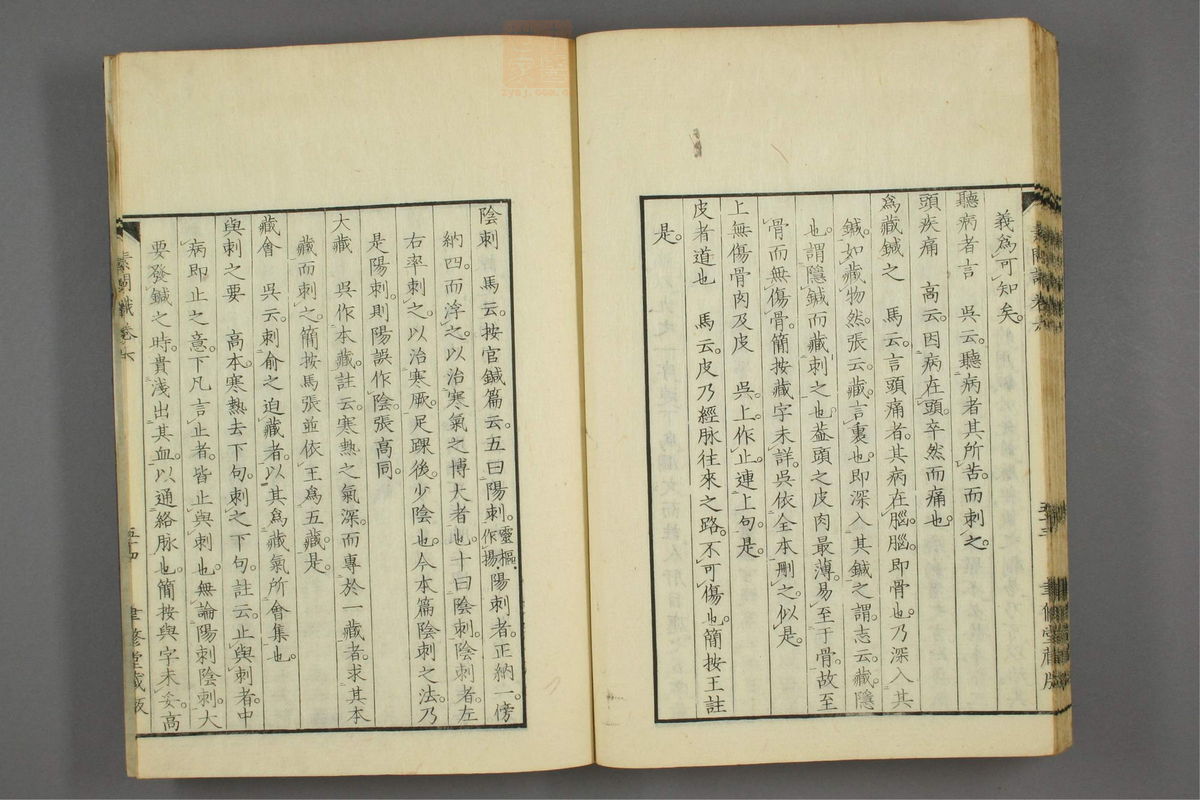 義爲可知矣。
聽病者言　吳云。聽病者其所苦。而刺之。
頭疾痛　高云。因病在頭。卒然而痛也。
爲藏鍼之　馬云。言頭痛者。其病在腦。腦即骨也。乃深入其
鍼。如藏物然。張云。藏言裏也。即深入其鍼之謂。志云。藏隱
也。謂隱鍼而藏刺之也。葢頭之皮肉最薄。易至于骨。故至
骨而無傷骨。簡按藏字未詳。吳依全本刪之。似是。
上無傷骨肉及皮　吳。上作止。連上句。是。
皮者道也　馬云。皮乃經脉往來之路。不可傷也。簡按王註
是。
陰刺　馬云。按官鍼篇云。五曰陽刺。靈樞作揚。陽刺者。正納一。傍
納四。而浮之。以治寒氣之博大者也。十曰陰刺。陰刺者。左
右率刺之。以治寒厥。足踝後。少陰也。今本篇陰刺之法。乃
是陽刺。則陽誤作陰。張高同。
大藏　吳作本藏。註云。寒熱之氣深。而專於一藏者。求其本
藏而刺之。簡按馬張並依王爲五藏。是。
藏會　吳云。刺俞之迫藏者。以其爲藏氣所會集也。
與刺之要　高本。寒熱去下句。刺之下句。註云。止與刺者。中
病即止之意。下凡言止者。皆止與刺也。無論陽刺陰刺。大
要發鍼之時。貴淺出其血。以通絡脉也。簡按與字未妥。高
素問識卷六
五十四
聿修堂藏版
五十三
聿修堂藏版